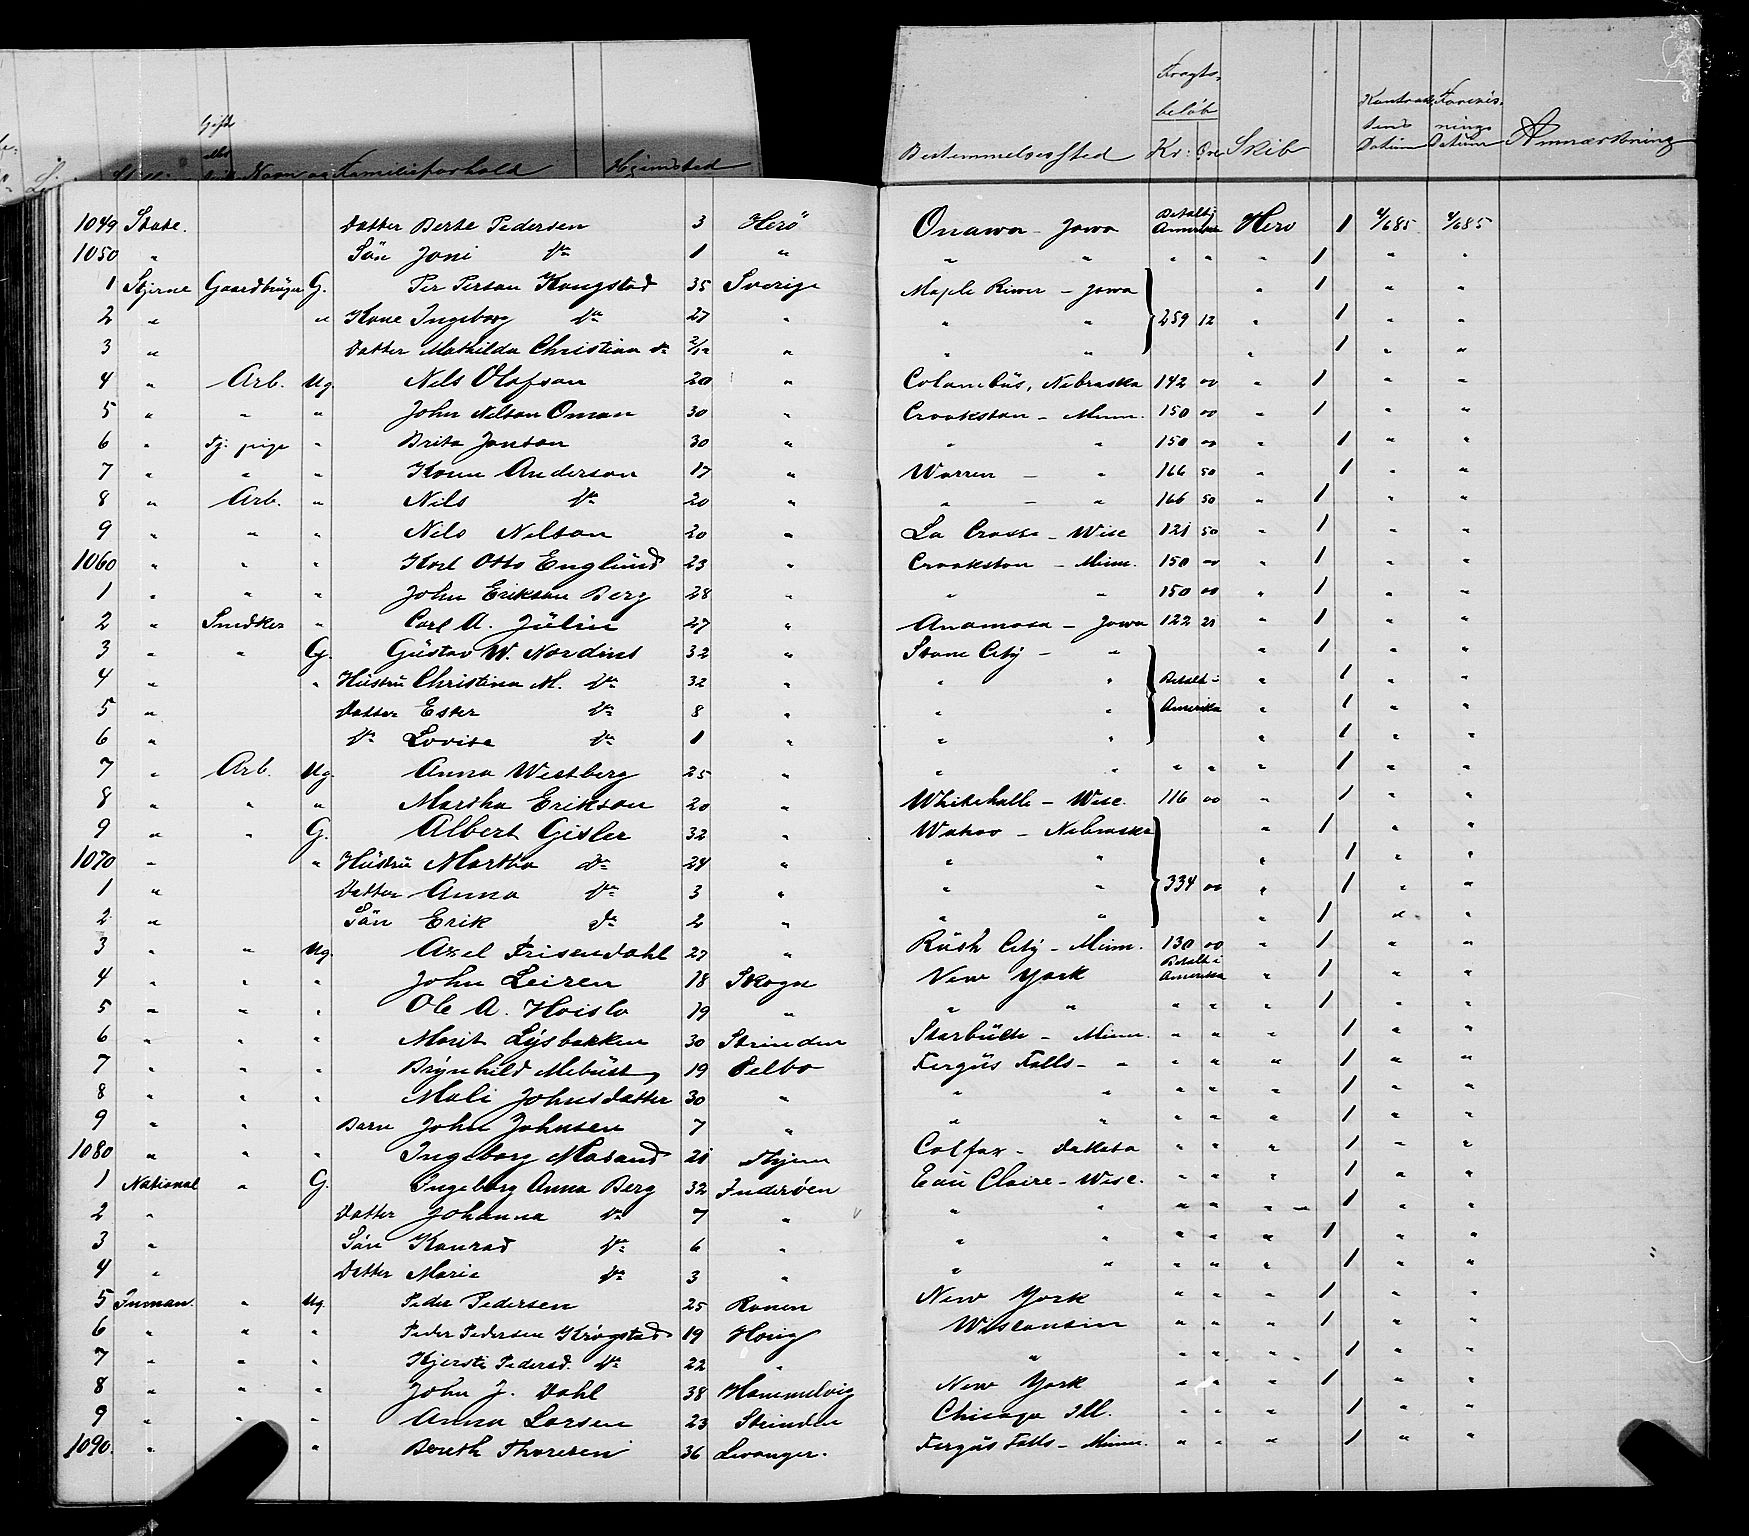 Gift
Navn og Familieforhold Hjemsted Bestemmelsessted Fragts- beløb Kr: Øre Skib Datum Datum Anmærkning
1049 State. Datter Berte Pedersen 3 Herö Onawa - Jowa Betalt i Amerika Hero 1 4/6 85 4/6 85
1050 " Sön Joni Do 1 " " " " " " 1 " "
1 Stjerne Gaardbruger G. Per Person Kongstad 35 Sverige Maple River - Jowa " 1 " "
2 " " Kone Ingeborg Do 27 " " " 259 12 " 1 " "
3 " Datter Mathilda Christina do 2/12 " " " " 1 " "
4 " Arb. Ug. Nils Olofson 20 " Columbus, Nebraska 142 00 " 1 " "
5 " " " John Nelson Oman 30 " Crookston - Minn. 150 00 " 1 " "
6 " Tj. pige " Brita Jonson 30 " " " 150 00 " 1 " "
7 " " " Karin Anderson 17 " Warren - " 166 50 " 1 " "
8 " Arb. " Nils Do 20 " " - " 166 50 " 1 " "
9 " " " Nels Nelson 20 " La Crosse - Wisc 121 50 " 1 " "
1060 " " " Karl Otto Englund 23 " Crookston - Minn. 150 00 " 1 " "
1 " " " John Erikson Berg 28 " " " 150 00 " 1 " "
2 " Snedker " Carl A. Julin 27 " Anamosa - Jowa 122 21 " 1 " "
3 " " G. Gustav W. Nordint 32 " Stone City - " " 1 " "
4 " " Hustru Christina M. Do 32 " " " Betalt i " 1 " "
5 " Datter Ester Do 8 " " " Amerika " 1 " "
6 " Do Lovisa Do 1 " " " " 1 " "
7 " Arb. Ug. Anna Westberg 25 " " " " " " 1 " "
8 " " " Martha Erikson 20 " Whitehalle - Wisc. 116 00 " 1 " "
9 " " G. Albert Gisler 32 " Wahoo - Nebraska " 1 " "
1070 " " Hustru Martha Do 24 " " " " 1 " "
1 " Datter Anna Do 3 " " " 334 00 " 1 " "
2 " Sön Erik Do 2 " " " " 1 " "
3 " " Ug. Axel Frisendahl 27 " Rush City - Minn. 130 00 " 1 " "
4 " " " John Leiren 18 Skogn New York Betalt i Amerika " 1 " "
5 " " " Ole A. Hoislo 19 " " " " " " 1 " "
6 " " " Marit Lysbakken 30 Strinden Starbuck - Minn. " " " 1 " "
7 " " " Brynhild Mebust 19 Selbo Fergus Falls - " " " " 1 " "
8 " " " Mali Johnsdatter 30 " " " " " " 1 " "
9 " " " Barn John Johnsen 7 " " " " " " 1 " "
1080 " " " Ingeborg Mosand 21 Thjem Colfax - Dakota " " " 1 " "
1 National " G. Ingeborg Anna Berg 32 Inderøen Eau Claire - Wisc. " " " 1 " "
2 " Datter Johanna Do 7 " " " " " " 1 " "
3 " Sön Konrad Do 6 " " " " " " 1 " "
4 " Datter Marie Do 3 " " " " " " 1 " "
5 Inman. " Ug. Peder Pedersen 25 Ranen New York " " " 1 " "
6 " " " Peder Pedersen Krogstad 19 Horig Wisconsin " " " 1 " "
7 " " " Kjersti Pedersd. Do 22 " " " " " 1 " "
8 " " " John J. Dahl 38 Hommelvig New York " " " 1 " "
9 " " " Anna Larsen 23 Strinden Chicago Ill. " " " 1 " "
1090. " " Bereth Thoresen 36 Levanger. Fergus Falls - Minn. " " " 1 " "